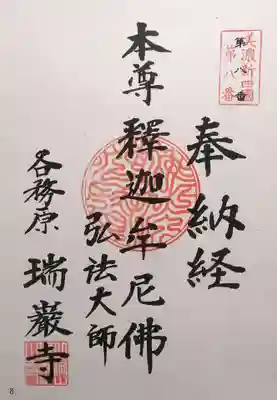 美濃新四國
第八番
第八番
奉納経
本尊釋迦牟尼佛
弘法大師
各務原 瑞巌寺
8